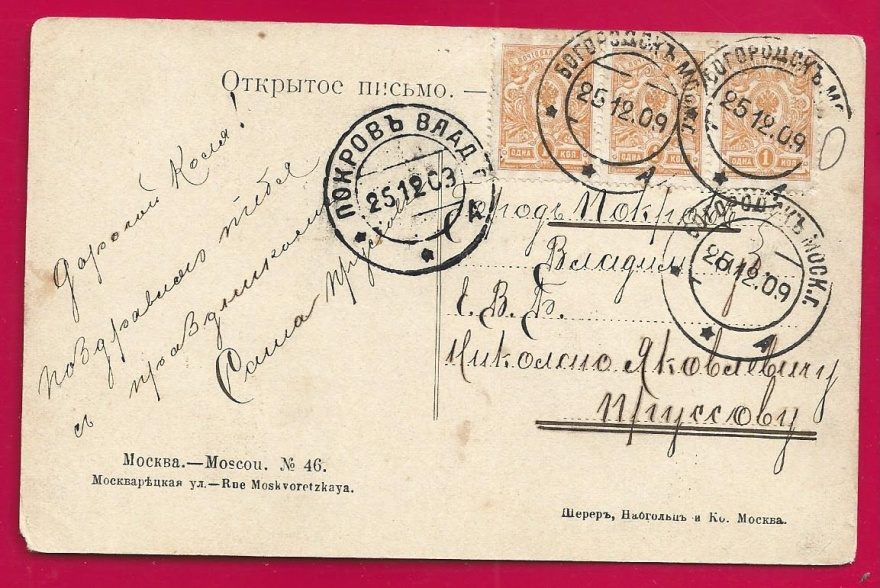 Открытое письмо. —
Дорогой Коля!
поздравляю тебя
с праздником
Саша Пруссов
Городъ Покровъ
Владим. г.
Е. В. Б.
Николаю Яковлевичу
Пруссову
БОГОРОДСКЪ МОСК. Г.
25 12.09
А
БОГОРОДСКЪ МО
25 12.09
А
БОГОРОДСКЪ МОСК. Г.
25 12.09
А
ПОКРОВЪ ВЛАД. Г.
25 12 09
А
ОДНА 1 КОП.
ОДНА 1 КОП.
ОДНА 1 КОП.
Москва.—Moscou. № 46.
Москварѣцкая ул.—Rue Moskvoretzkaya.
Шереръ, Набгольцъ и Ко. Москва.